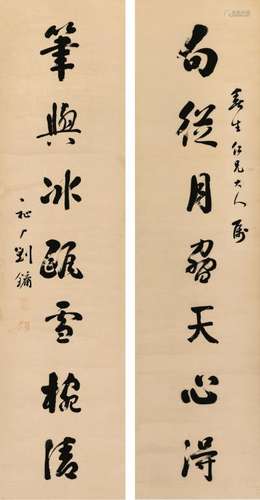 句從月脅天心得
春生仁兄大人屬
筆與冰甌雪椀清
劉鏞